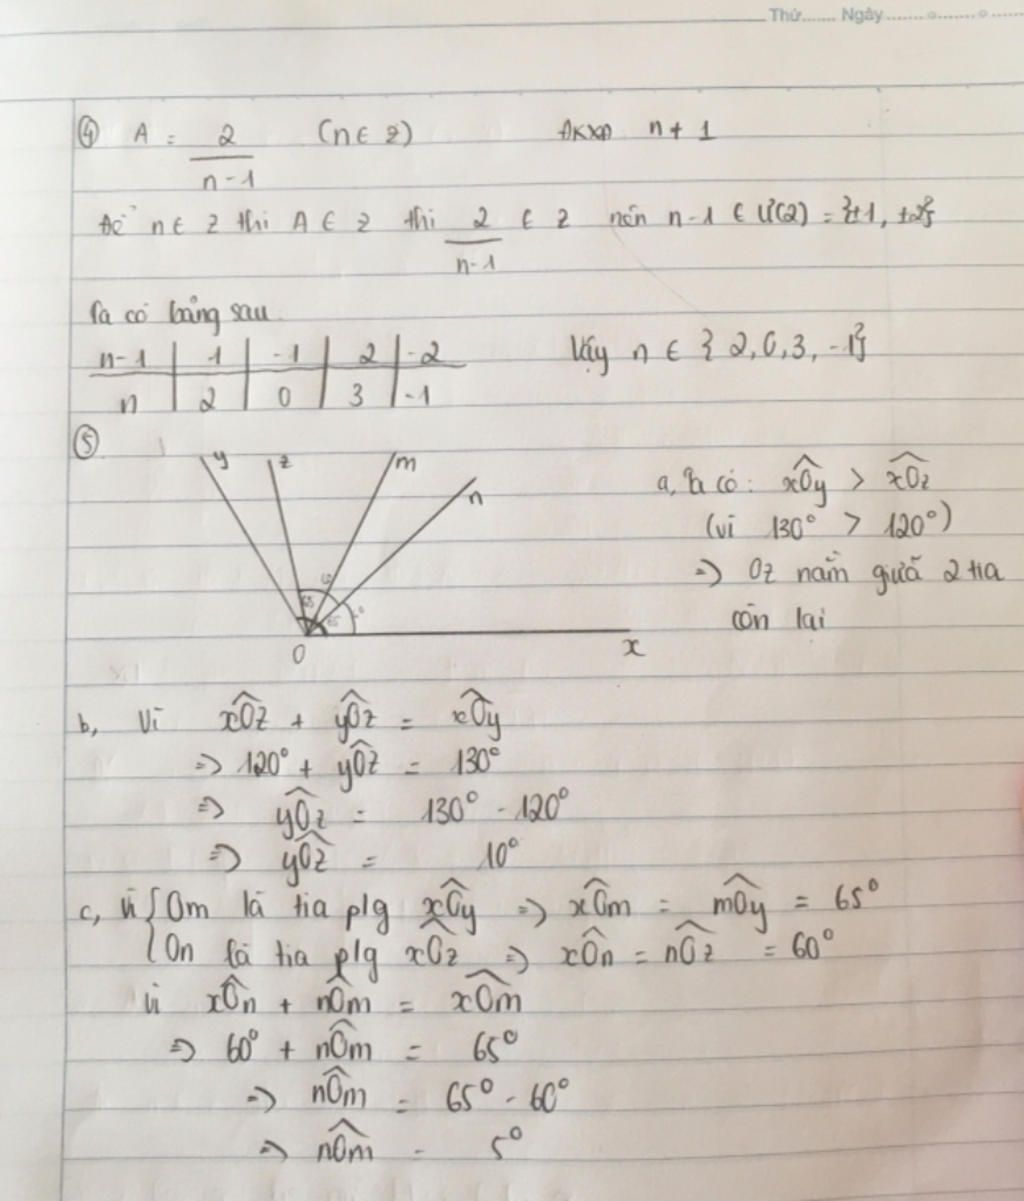 Thứ....... Ngày.......
④ A = 2/(n-1) (n ∈ Z) ĐKXĐ n ≠ 1
Để n ∈ Z thì A ∈ Z thì 2/(n-1) ∈ Z nên n-1 ∈ Ư(2) = {±1, ±2}
Ta có bảng sau
n-1 | 1 | -1 | 2 | -2
n | 2 | 0 | 3 | -1
Vậy n ∈ { 2, 0, 3, -1}
⑤
y z m
n
O x
a, Ta có: xÔy > xÔz
(vì 130° > 120°)
=> Oz nằm giữa 2 tia
còn lại
b, Vì xÔz + yÔz = xÔy
=> 120° + yÔz = 130°
=> yÔz = 130° - 120°
=> yÔz = 10°
c, Vì { Om là tia plg xÔy => xÔm = mÔy = 65°
On là tia plg xÔz => xÔn = nÔz = 60°
Vì xÔn + nÔm = xÔm
=> 60° + nÔm = 65°
=> nÔm = 65° - 60°
=> nÔm = 5°